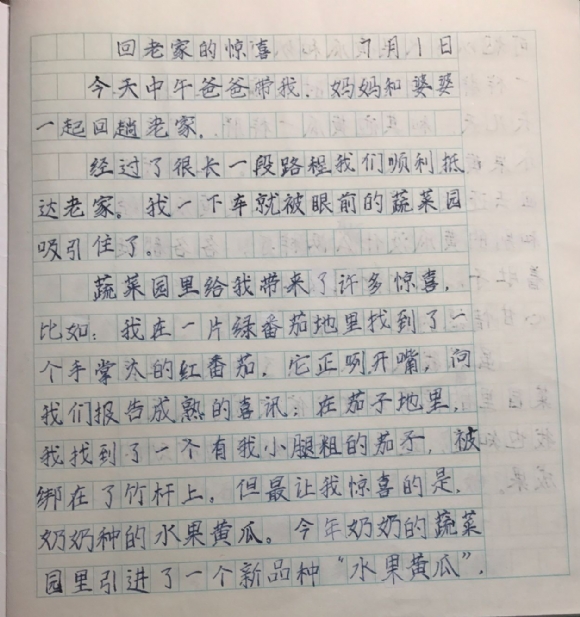 回老家的惊喜 7月1日
今天中午爸爸带我、妈妈和婆婆
一起回趟老家。
经过了很长一段路程我们顺利抵
达老家。我一下车就被眼前的蔬菜园
吸引住了。
蔬菜园里给我带来了许多惊喜,
比如:我在一片绿番茄地里找到了一
个手掌大的红番茄,它正咧开嘴,向
我们报告成熟的喜讯;在茄子地里,
我找到了一个有我小腿粗的茄子,被
绑在了竹杆上。但最让我惊喜的是,
奶奶种的水果黄瓜。今年奶奶的蔬菜
园里引进了一个新品种“水果黄瓜”,